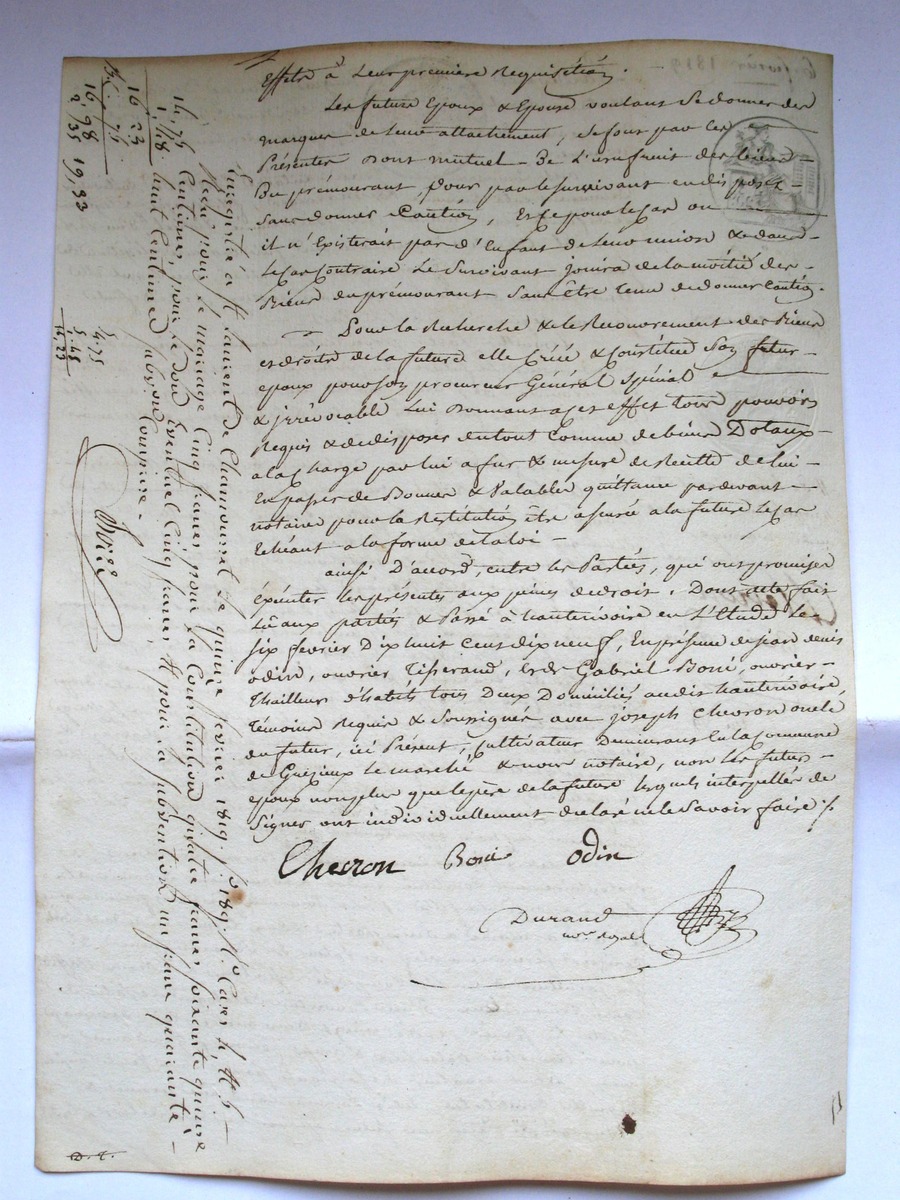 Effets à Leur première Requisition.
Les future Epoux & Epouse voulant Se donner des
marques de Leur attachement, Se font par les
Présentes Dont mutuel De L'usufruit des biens
Du prémourant, pour par le survivant en disposer
Sans donner Caution, Et Ce pour le Cas ou
il n'Existerait pas d'Enfant de Leur union & dans
le Cas Contraire Le Survivant jouira de la moitié des
Biens du prémourant Sans être tenu de donner Caution.
Pour la Recherche & le Recouvrement des Biens
et droits de la future elle Créé & Constitue Son futur
epoux pour son procureur Général Spécial
& irrévocable Lui Donnant a cet effet tous pouvoirs
Requis & de disposer du tout Comme de biens Dotaux
a la Charge par lui a fur & mesure de Recette de lui
En passer de Bonnes & Valables quittances pardevant
notaire pour la Restitution être assurée a la future le Cas
Echéant a la forme de la loi
ainsi D'accord, entre les Parties, qui ont promis
Exécuter les présentes aux peines de droit. Dont acte fait
Lu aux parties & Passé à hauterivoire en L'Etude Le
Six février Dix huit Cent dix neuf, En présence de jean denis
odin, ouvrier, Tisserand, & de Gabriel Boni, ouvrier
Thailleurs d'habits tous Deux Domiciliés audit hauterivoire,
Témoins Requis & Soussignés avec joseph Chevron oncle
du futur, ici Présent, Cultivateur Demeurant En la Commune
de Grézieux le marché & nous notaire, non les futurs
epoux non plus que le père de la future lesquels interpellés de
Signer ont individuellement déclaré ne le Savoir faire
Chevron Boni odin
Durand
no.re Royal
Enregistré à St Laurent de Chamousset le quinze février 1819. fo 189, Ro Cases 4 et 5.
Reçu pour le mariage Cinq francs pour la Constitution quatre francs soixante quinze
Centimes, pour le don Eventuel Cinq francs et pour la subvention un franc quarante
huit Centimes
14,75
1,48
16,23
16 98
2 35
19,33
14,75
1.48
16,23
6 février 1819
D. t.